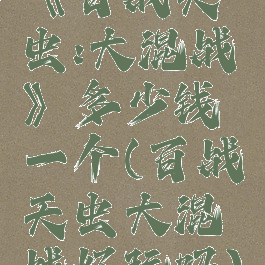 《百战天
虫:大混战
》多少钱
一个(百战
天虫大混
战好玩吗)